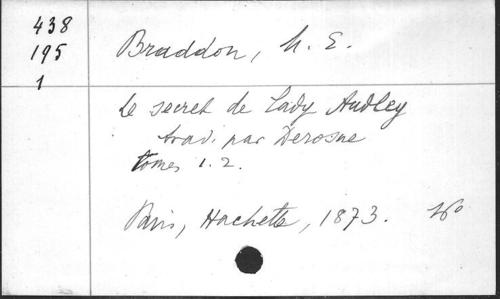 438
195
1
Braddon, M. E.
Le secret de Lady Audley
trad. par Derosne
tomes 1. 2.
Paris, Hachette, 1873.